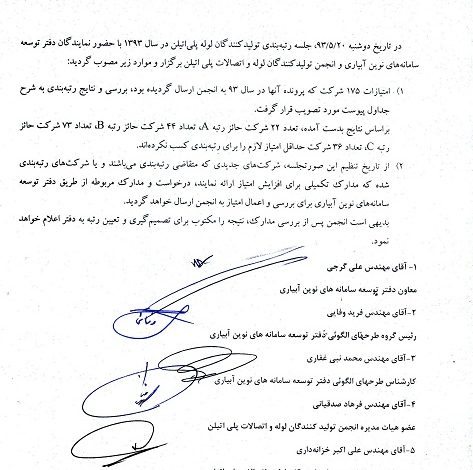 در تاریخ دوشنبه ۹۳/۵/۲۰، جلسه رتبه‌بندی تولیدکنندگان لوله پلی‌اتیلن در سال ۱۳۹۳ با حضور نمایندگان دفتر توسعه
سامانه‌های نوین آبیاری و انجمن تولیدکنندگان لوله و اتصالات پلی اتیلن برگزار و موارد زیر مصوب گردید:
۱) امتیازات ۱۷۵ شرکت که پرونده آنها در سال ۹۳ به انجمن ارسال گردیده بود، بررسی و نتایج رتبه‌بندی به شرح
جداول پیوست مورد تصویب قرار گرفت.
براساس نتایج بدست آمده، تعدد ۲۲ شرکت حائز رتبه A، تعداد ۴۴ شرکت حائز رتبه B، تعداد ۷۳ شرکت حائز
رتبه C، تعداد ۳۶ شرکت حداقل امتیاز لازم را برای رتبه‌بندی کسب نکرده‌اند.
۲) از تاریخ تنظیم این صورتجلسه، شرکت‌های جدیدی که متقاضی رتبه‌بندی می‌باشند و یا شرکت‌های رتبه‌بندی
شده که مدارک تکمیلی برای افزایش امتیاز ارائه نمایند، درخواست و مدارک مربوطه از طریق دفتر توسعه
سامانه‌های نوین آبیاری برای بررسی و اعمال امتیاز به انجمن ارسال خواهد گردید.
بدیهی است انجمن پس از بررسی مدارک، نتیجه را مکتوب برای تصمیم‌گیری و تعیین رتبه به دفتر اعلام خواهد
نمود.
۱- آقای مهندس علی گرجی
معاون دفتر توسعه سامانه های نوین آبیاری
۲-آقای مهندس فرید وفایی
رئیس گروه طرحهای الگوئی دفتر توسعه سامانه های نوین آبیاری
۳-آقای مهندس محمد نبی غفاری
کارشناس طرحهای الگوئی دفتر توسعه سامانه های نوین آبیاری
۴-آقای مهندس فرهاد صدقیانی
عضو هیات مدیره انجمن تولید کنندگان لوله و اتصالات پلی اتیلن
۵-آقای مهندس علی اکبر خزانه‌داری